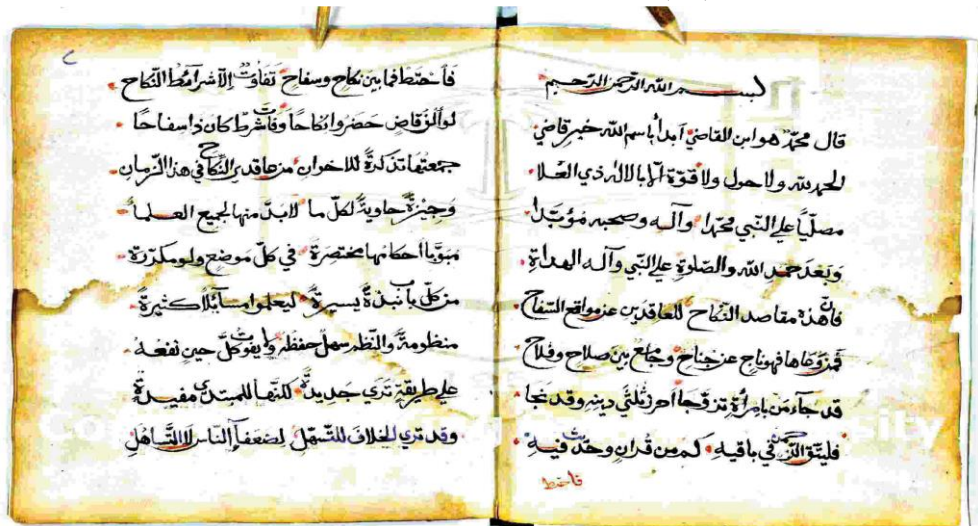 بسم الله الرحمن الرحيم
قال محمد هو ابن القاضي أبدأ باسم الله خير قاضي
الحمد لله ولا حول ولا قوة إلا بالإله ذي العلا
مصليا على النبي محمدا وآله وصحبه مؤبدا
وبعد حمد الله والصلوة على النبي وآله الهداة
فان هذه مقاصد النكاح للعاقدين عن مواقع السفاح
فمن وعاها فهو ناج عن جناح وجامع بين صلاح وفلاح
قد جاء من بامرأة تزوجا أحرز ثلثي دينه وقد نجا
فليتق الرحمن في باقيه كم من قران وحديث فيه
فاحتط
٢
فاحتط فما بين نكاح وسفاح تفاوت إلا شرائط النكاح
لو ألف قاض حضروا نكاحا وفات شرط كان ذا سفاحا
جمعتها تذكرة للاخوان من عاقدي النكاح في هذا الزمان
وجيزة حاوية لكل ما لابد منها لجميع العلما
مبوبا أحكامها مختصرة في كل موضع ولو مكررة
من كل باب نبذة يسيرة ليعلموا مسائلا كثيرة
منظومة والنظم سهل حفظه وايفوت كل حين نفعه
على طريقة ترى جديدة لكنها للمبتدى مفيدة
وقد ترى الخلاف للتسهل لضعفاء الناس لا التساهل